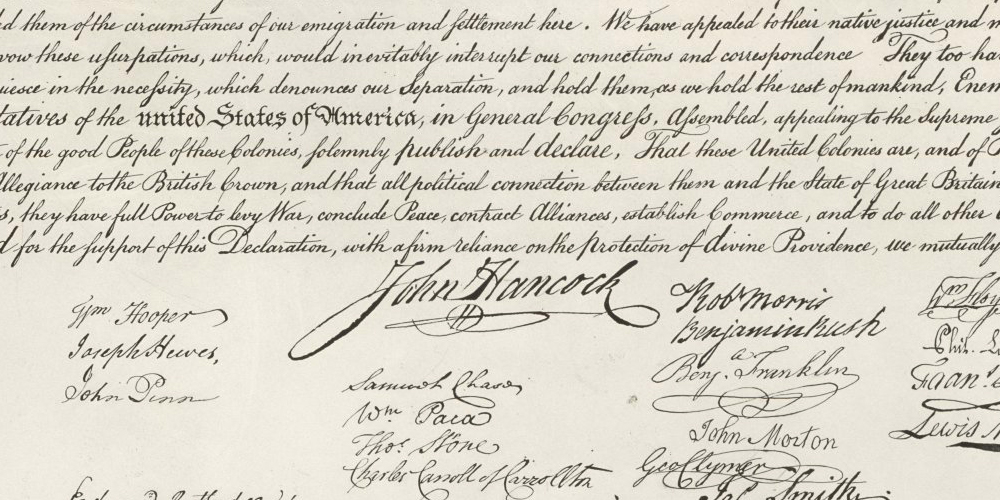 ed them of the circumstances of our emigration and settlement here. We have appealed to their native justice and
vow these usurpations, which, would inevitably interrupt our connections and correspondence They too
uiesce in the necessity, which denounces our Separation, and hold them, as we hold the rest of mankind, Enem
tatives of the united States of America, in General Congress, Assembled, appealing to the Supreme
of the good People of these Colonies, solemnly publish and declare, That these United Colonies are, and of
Allegiance to the British Crown, and that all political connection between them and the State of Great Britain
s, they have full Power to levy War, conclude Peace, contract Alliances, establish Commerce, and to do all other
d for the support of this Declaration, with a firm reliance on the protection of divine Providence, we mutually
John Hancock
Wm Hooper
Joseph Hewes,
John Penn
Samuel Chase
Wm Paca
Thos. Stone
Charles Carroll of Carrollton
Robt Morris
Benjamin Rush
Benja. Franklin
John Morton
Geo Clymer
Jas. Smith
Wm Floy
Phil. L
Fran.
Lewis